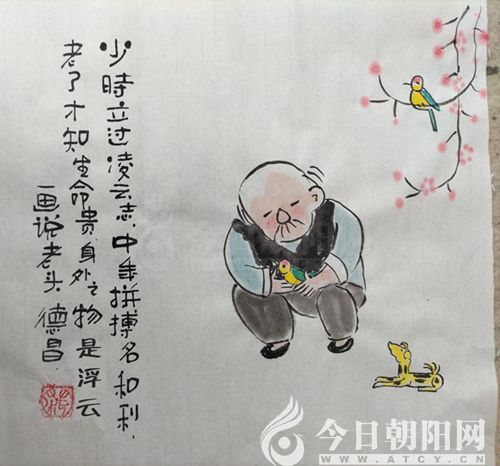 少時立过凌云志，中年拼搏名和利，
老了才知生命贵身处之物是浮云
画说老头 德昌
今日朝阳网
WWW.ATCY.CN